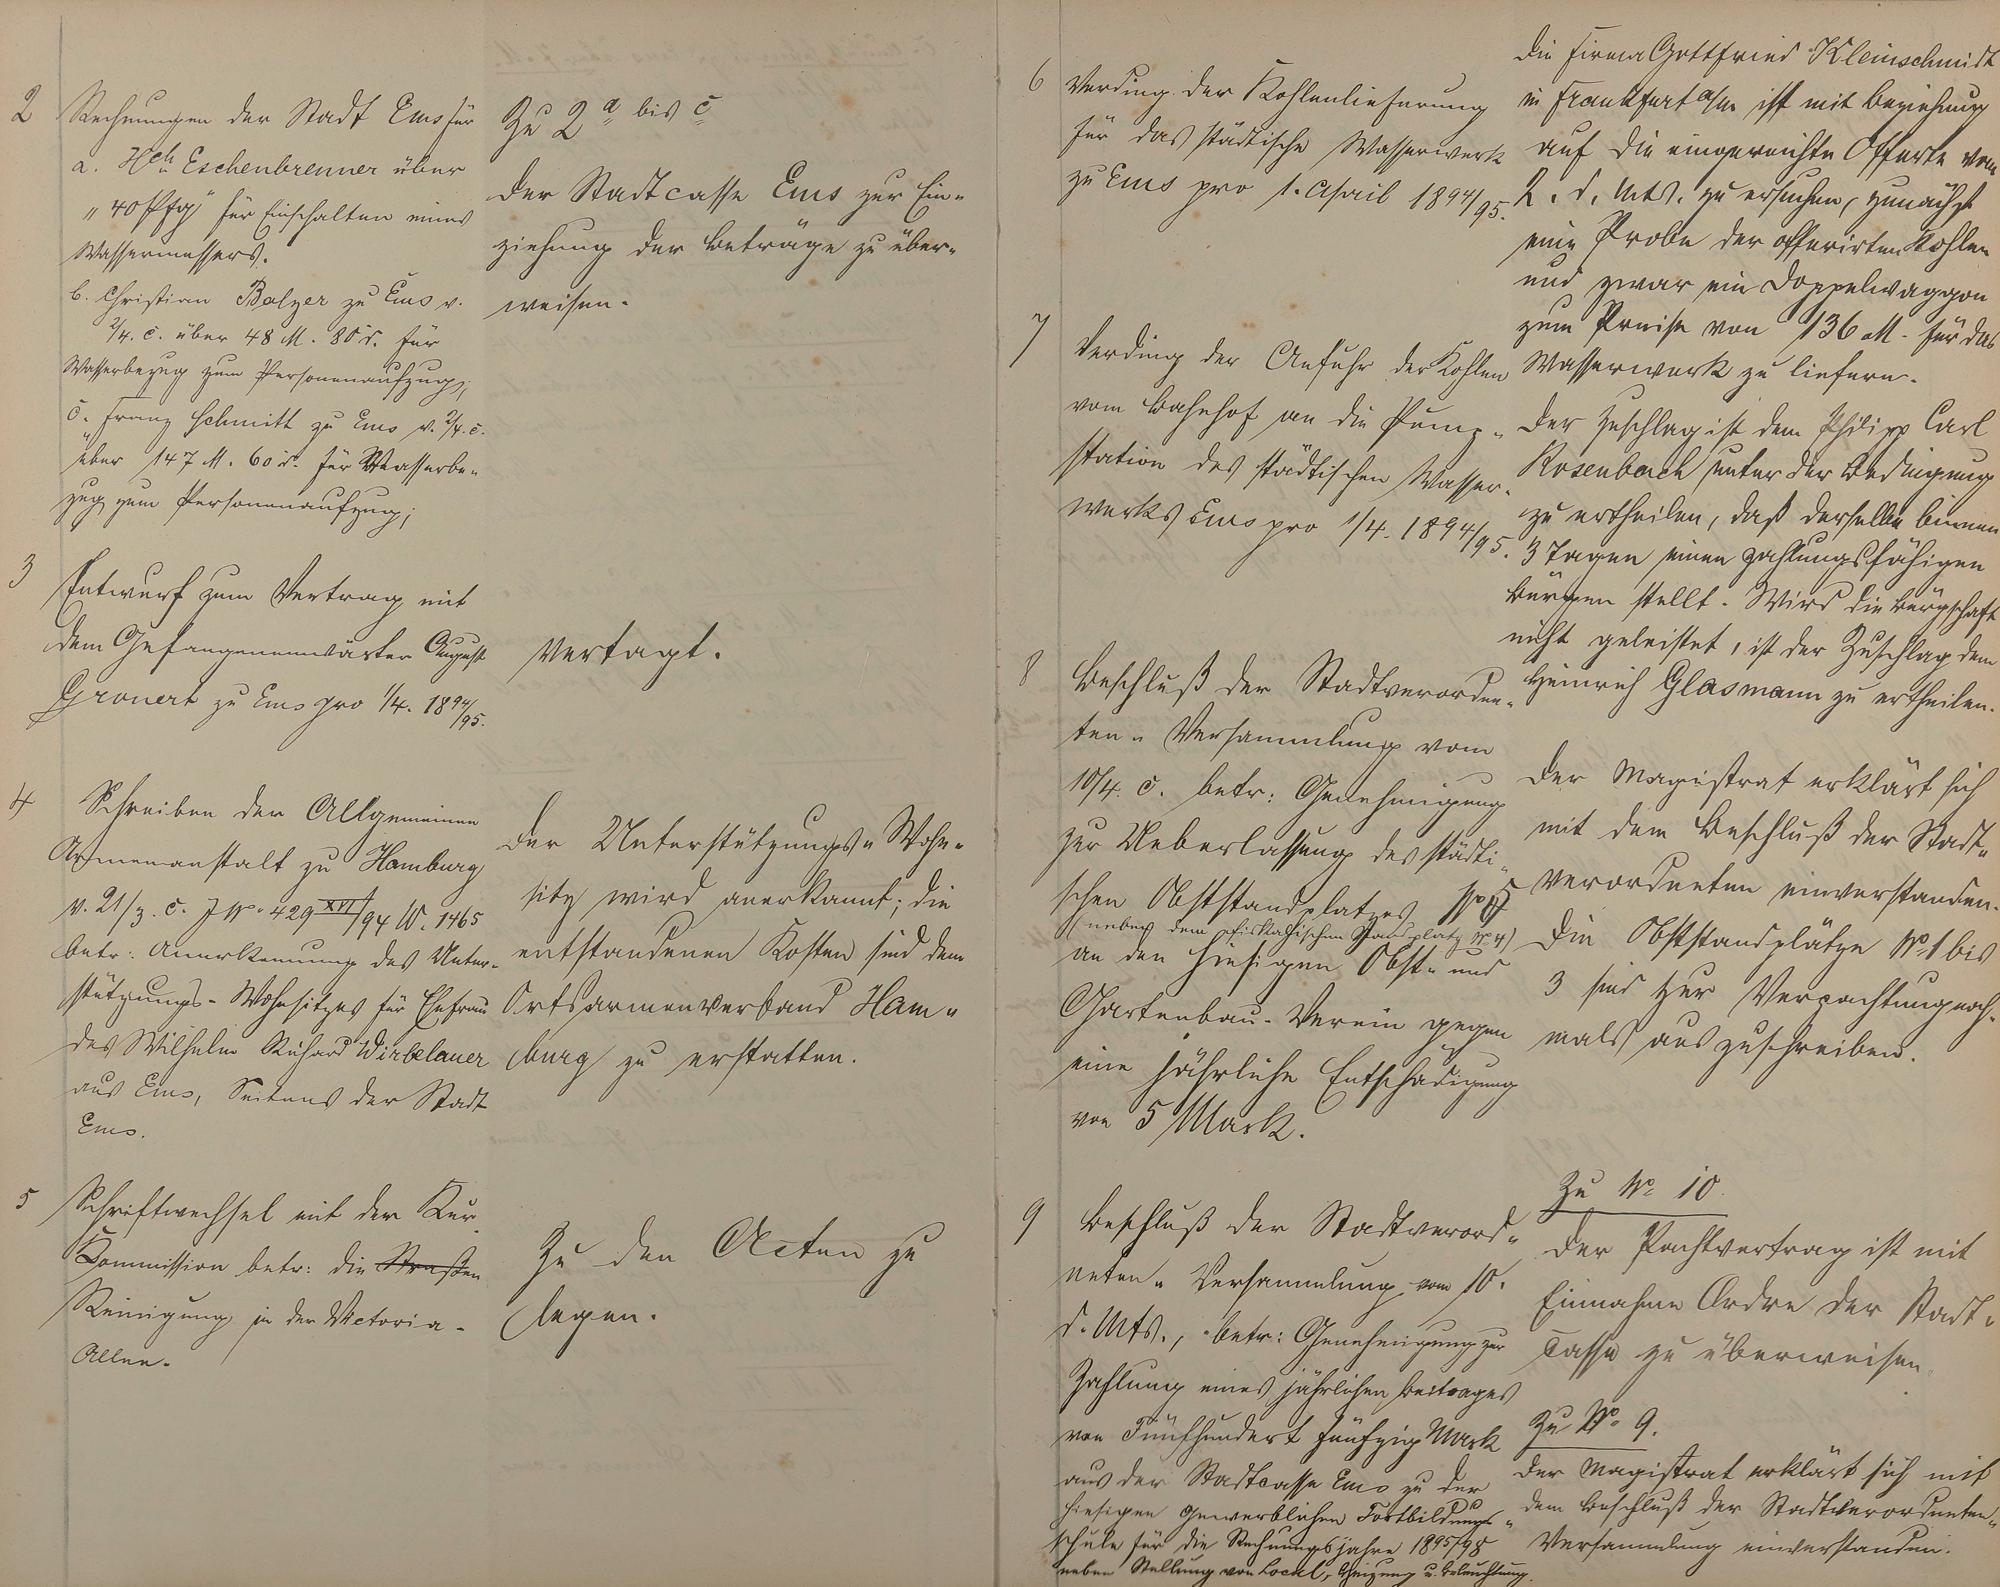 2 Rechnungen der Stadt Ems für
a. Hch Eschenbrenner über
"40 Pfg" für Einschalten eines
Wassermessers.
b. Christian Balzer zu Ems v.
2/4. c. über 48 M. 80 d. für
Wasserbezug zum Personenaufzug;
c. Franz Schmitt zu Ems v. 2/4. c.
über 147 M. 60 d. für Wasserbe-
zug zum Personenaufzug;
Zu 2 a bis c
Der Stadtcasse Ems zur Ein-
ziehung der Beträge zu über-
weisen.
3 Entwurf zum Vertrag mit
dem Gefangenenwärter August
Gronert zu Ems pro 1/4. 1894/95.
Vertagt.
4 Schreiben der Allgemeinen
Armenanstalt zu Hamburg
v. 21/3. c. J No. 429 XVI/94 W. 1465
betr: Anerkennung des Unter-
stützungs-Wohnsitzes für Ehefrau
des Wilhelm Richard Wirbelauer
aus Ems, Seitens der Stadt
Ems.
Der Unterstützungs-Wohn-
sitz wird anerkannt; die
entstandenen Kosten sind dem
Ortsarmenverband Ham-
burg zu erstatten.
5 Schriftwechsel mit der Kur
Commission betr: die Straßen
Reinigung in der Victoria-
Allee.
Zu den Acten zu
legen.
6 Verding der Kohlenlieferung
für das städtische Wasserwerk
zu Ems pro 1. April 1894/95.
Die Firma Gottfried Kleinschmidt
in Frankfurt a/m ist mit Beziehung
auf die eingereichte Offerte vom
2. d. Mts. zu ersuchen, zunächst
eine Probe der offerirten Kohlen
und zwar ein Doppelwaggon
zum Preise von 136 M. für das
Wasserwerk zu liefern.
7 Verding der Anfuhr der Kohlen
vom Bahnhof an die Pump-
station des städtischen Wasser-
werks Ems pro 1/4. 1894/95.
Der Zuschlag ist dem Philipp Carl
Rosenbach unter der Bedingung
zu ertheilen, daß derselbe binnen
3 Tagen einen zahlungsfähigen
Bürgen stellt. Wird die Bürgschaft
nicht geleistet, ist der Zuschlag dem
Heinrich Glasmann zu ertheilen.
8 Beschluß der Stadtverordne-
ten-Versammlung vom
10/4. c. betr: Genehmigung
zur Ueberlassung des städti-
schen Obststandplatzes No 5
(neben dem fiskalischen Standplatz No 4)
an den hiesigen Obst- und
Gartenbau-Verein gegen
eine jährliche Entschädigung
von 5 Mark.
Der Magistrat erklärt sich
mit dem Beschluß der Stadt-
verordneten einverstanden.
Die Obststandplätze No 1 bis
3 sind zur Verpachtung noch-
mals auszuschreiben.
9 Beschluß der Stadtverord-
neten-Versammlung vom 10.
d. Mts., betr: Genehmigung zur
Zahlung eines jährlichen Beitrages
von Fünfhundert fünfzig Mark
aus der Stadtcasse Ems zu der
hiesigen gewerblichen Fortbildungs-
schule für die Rechnungsjahre 1895/98
neben Stellung von Local, Heizung u. Beleuchtung.
Zu No 10.
Der Pachtvertrag ist mit
Einnahme Ordre der Stadt-
casse zu überweisen.
Zu No 9.
Der Magistrat erklärt sich mit
dem Beschluß der Stadtverordneten-
Versammlung einverstanden.